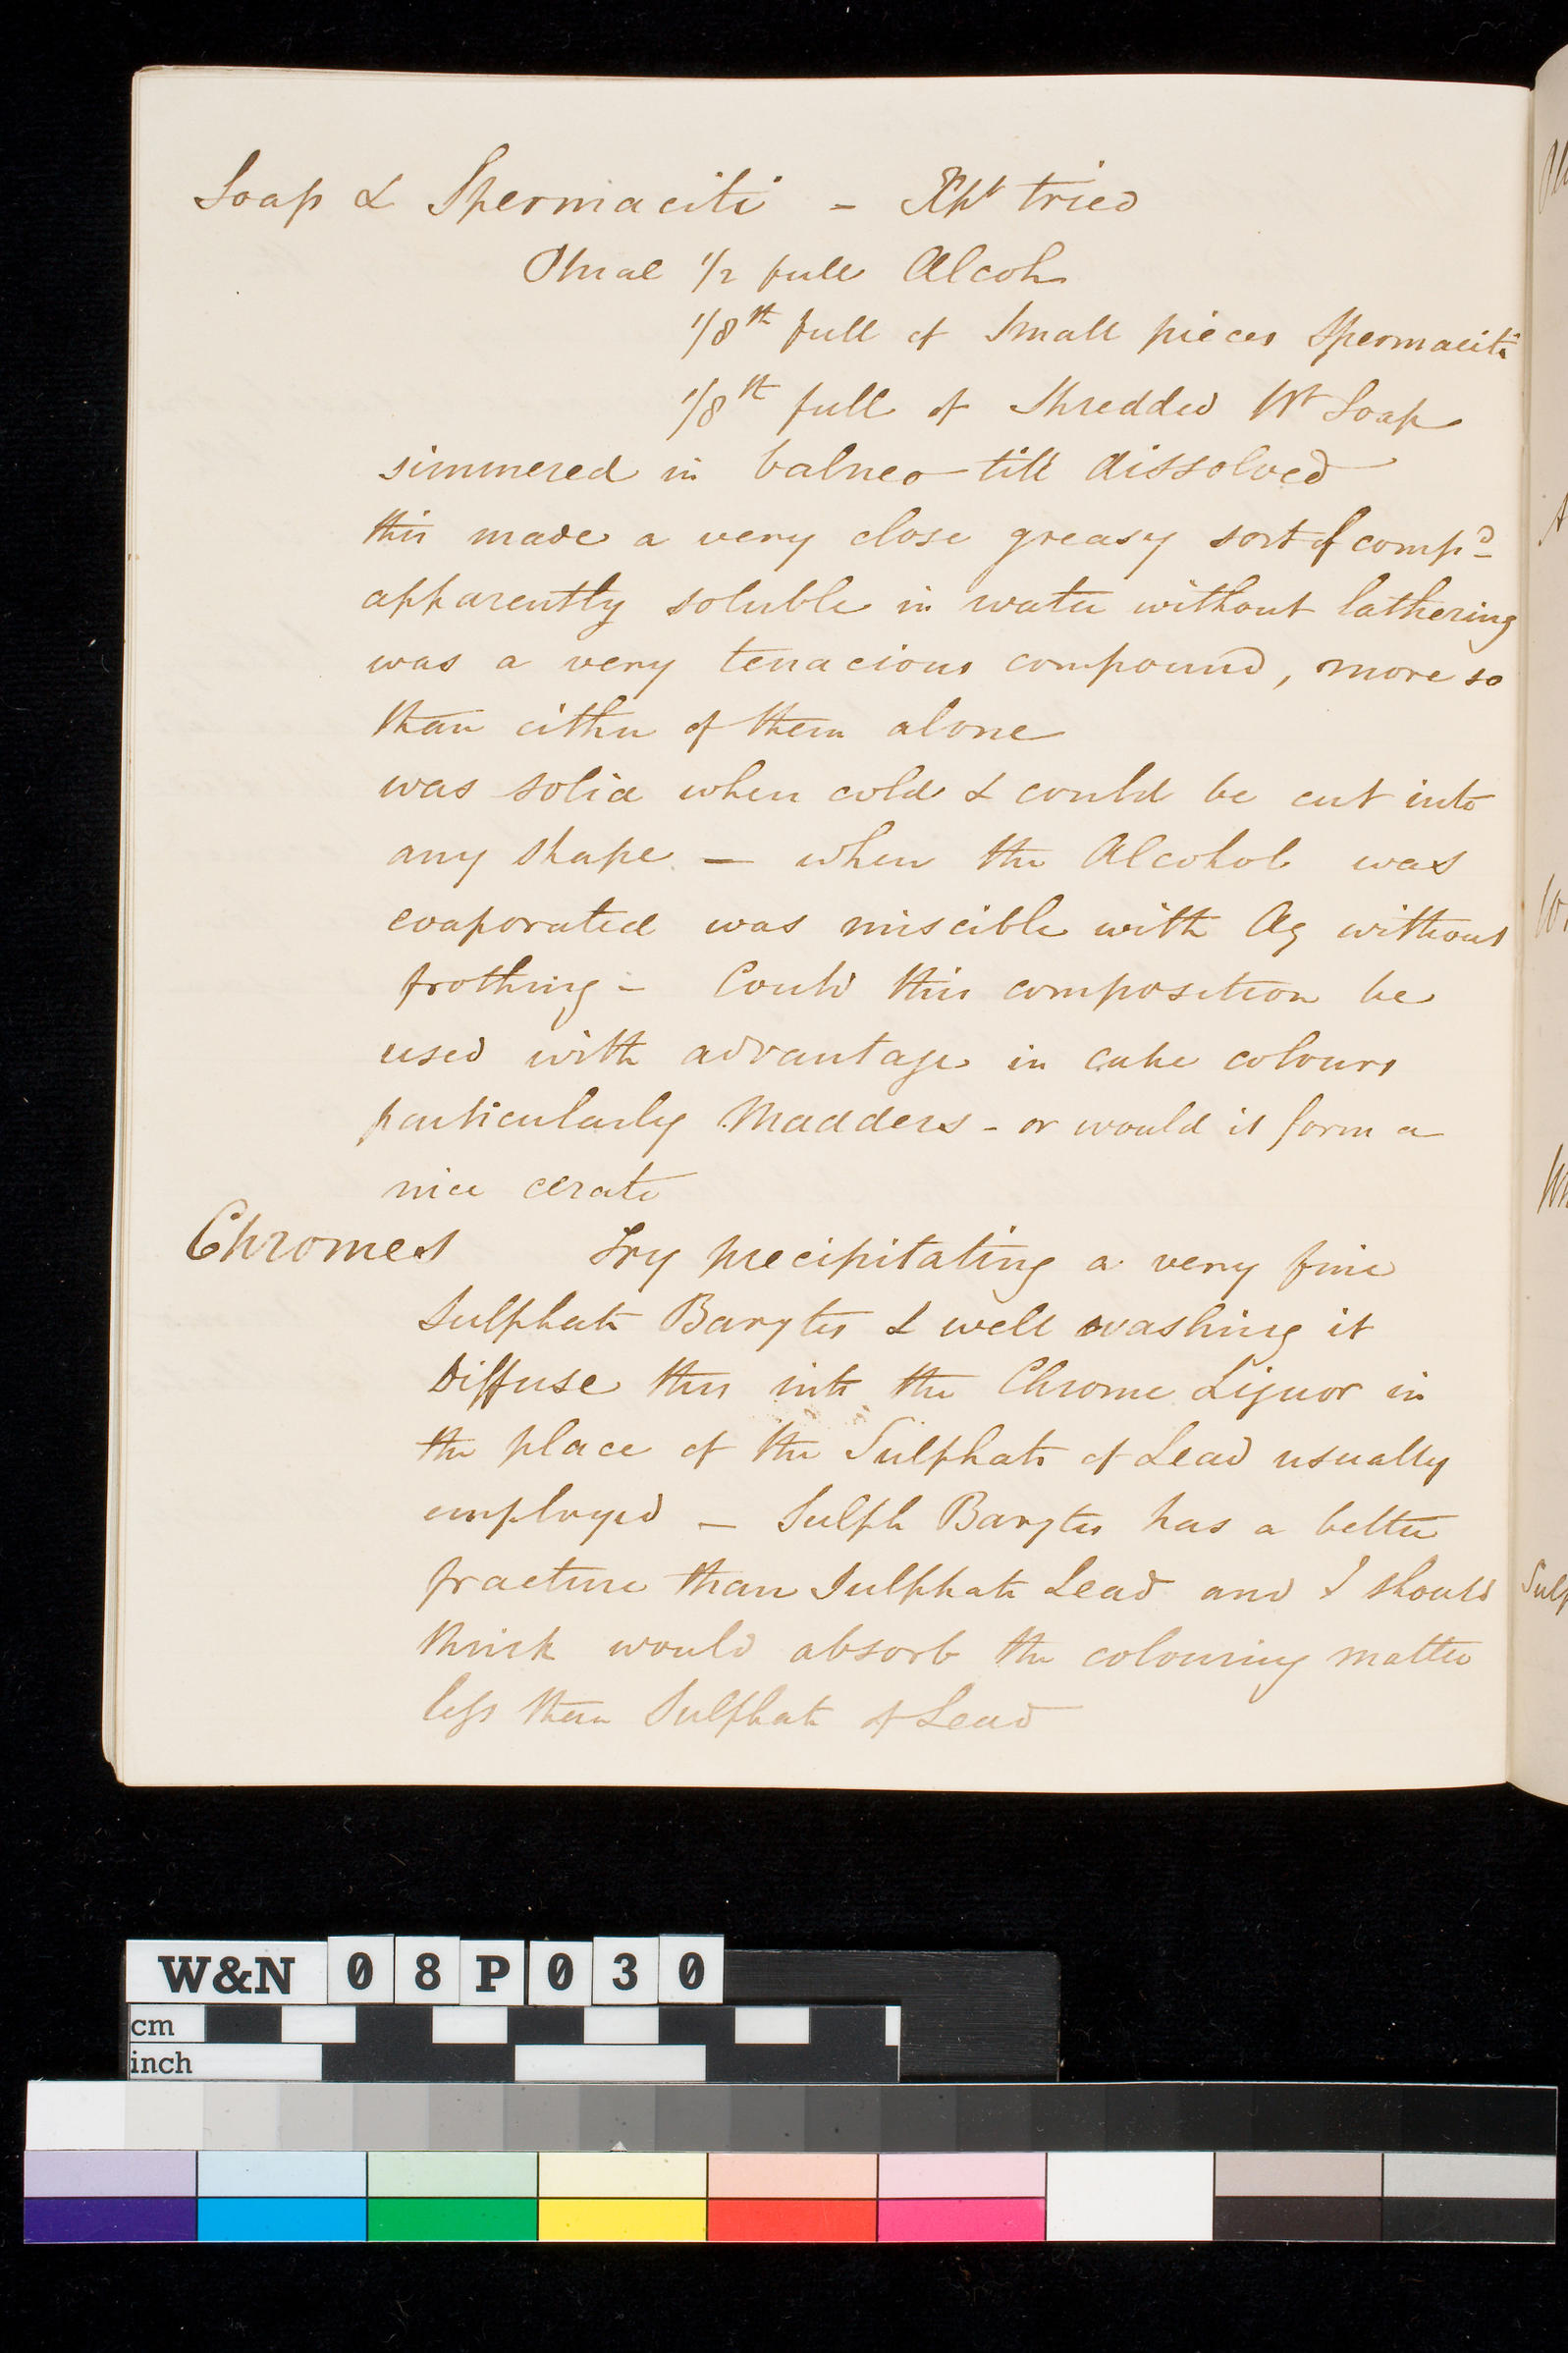 Soap & Spermaciti - Xpt tried
Phial 1/2 full Alcoh
1/8th full of Small pieces Spermaciti
1/8th full of Shredded Wt Soap
simmered in balneo till dissolved
this made a very close greasy sort of compd
apparently soluble in water without lathering
was a very tenacious compound, more so
than either of them alone
was solid when cold & could be cut into
any shape - when the Alcohol was
evaporated was miscible with Aq without
frothing - Could this composition be
used with advantage in cake colours
particularly Madders - or would it form a
nice cerate
Chromes Try precipitating a very fine
Sulphate Barytes & well washing it
Diffuse this into the Chrome Liquor in
the place of the Sulphate of Lead usually
employed - Sulph Barytes has a better
fracture than Sulphate Lead and I should
think would absorb the colouring matter
less than Sulphate of Lead
Sulp
W&N 08P030
cm
inch